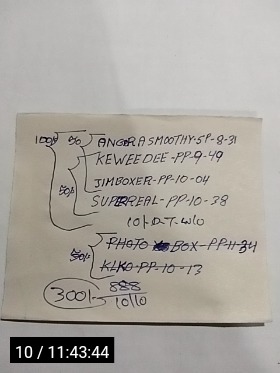 100/- 50 ANGORA SMOOTHY-SP-8-31
KEWEEDEE-PP-9-49
50/- JIMBOXER-PP-10-04
SUPERREAL-PP-10-38
10/-D-T-W/O
50/- PHOTO BOX-PP-11-34
KLKO-PP-10-13
300/- 888
10/10
10 / 11:43:44